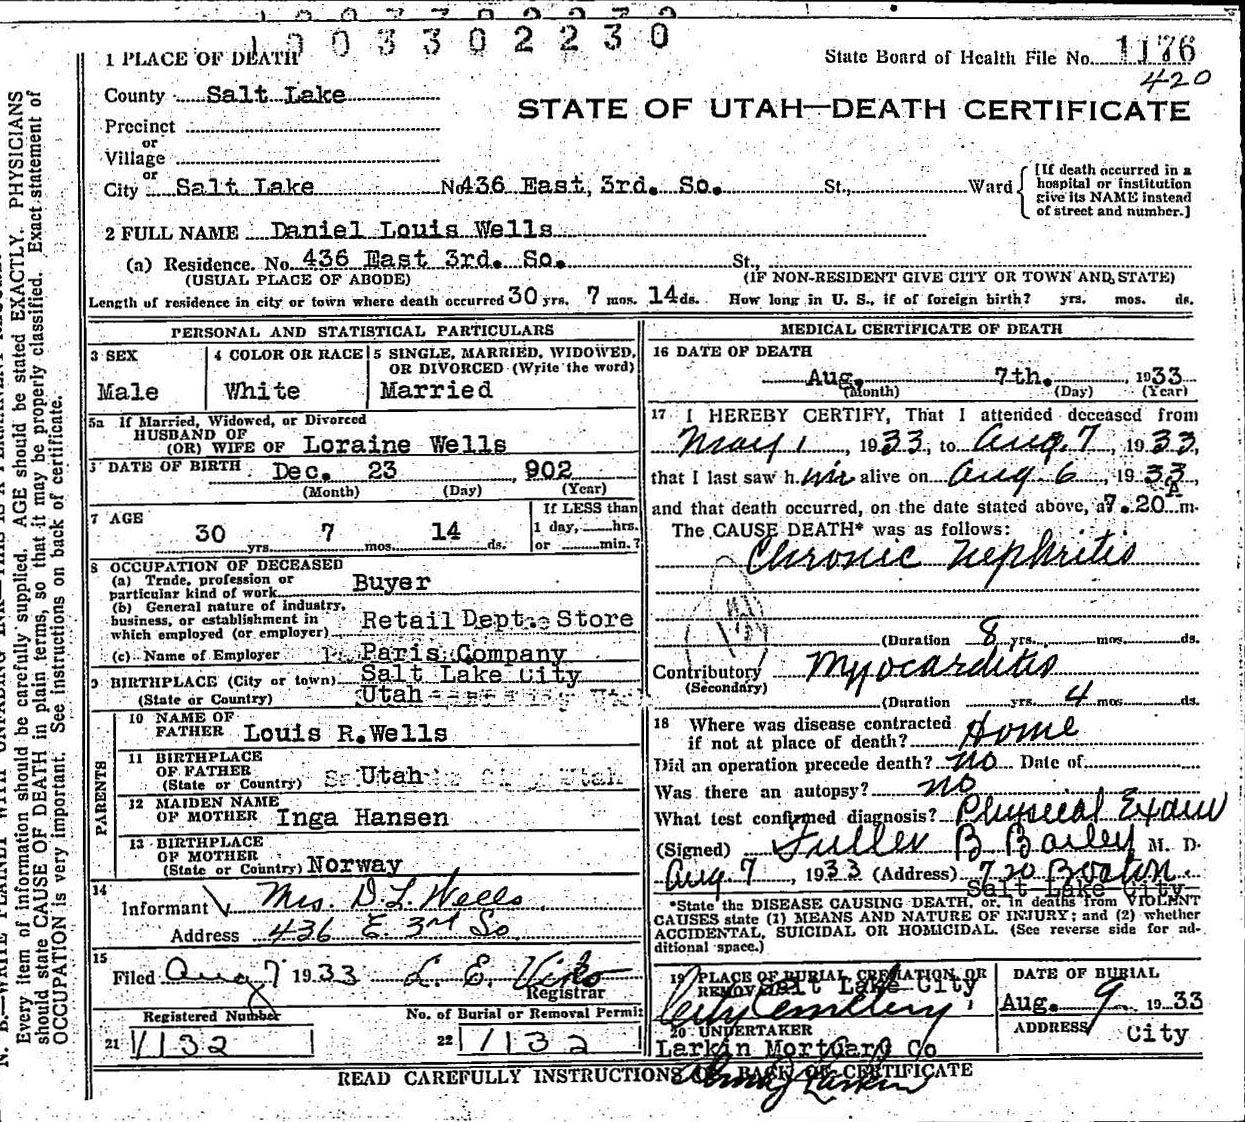 1003302230
1 PLACE OF DEATH
State Board of Health File No. 1176
420
County Salt Lake
STATE OF UTAH—DEATH CERTIFICATE
Precinct
or
Village
or
City Salt Lake No 436 East, 3rd. So. St., Ward
[If death occurred in a
hospital or institution
give its NAME instead
of street and number.]
2 FULL NAME Daniel Louis Wells
(a) Residence. No. 436 East 3rd. So. St.,
(USUAL PLACE OF ABODE) (IF NON-RESIDENT GIVE CITY OR TOWN AND STATE)
Length of residence in city or town where death occurred 30 yrs. 7 mos. 14 ds. How long in U. S., if of foreign birth? yrs. mos. ds.
PERSONAL AND STATISTICAL PARTICULARS
3 SEX
Male
4 COLOR OR RACE
White
5 SINGLE, MARRIED, WIDOWED,
OR DIVORCED (Write the word)
Married
5a If Married, Widowed, or Divorced
HUSBAND OF
(OR) WIFE OF Loraine Wells
DATE OF BIRTH Dec. 23 , 902
(Month) (Day) (Year)
7 AGE
30 yrs. 7 mos. 14 ds.
If LESS than
1 day, hrs.
or min.?
8 OCCUPATION OF DECEASED
(a) Trade, profession or
particular kind of work Buyer
(b) General nature of industry,
business, or establishment in
which employed (or employer) Retail Dept. Store
(c) Name of Employer Paris Company
9 BIRTHPLACE (City or town) Salt Lake City
(State or Country) Utah
PARENTS
10 NAME OF
FATHER Louis R. Wells
11 BIRTHPLACE
OF FATHER
(State or Country) Utah
12 MAIDEN NAME
OF MOTHER Inga Hansen
13 BIRTHPLACE
OF MOTHER
(State or Country) Norway
14
Informant Mrs. D. L. Wells
Address 436 E. 3rd So
15
Filed Aug 7 1933 L. E. Viko
Registrar
Registered Number
21 1132
No. of Burial or Removal Permit
22 1132
MEDICAL CERTIFICATE OF DEATH
16 DATE OF DEATH
Aug. 7th. , 1933
(Month) (Day) (Year)
17 I HEREBY CERTIFY, That I attended deceased from
May 1 , 1933, to Aug. 7 , 1933,
that I last saw him alive on Aug 6 , 1933,
and that death occurred, on the date stated above, at 7.20 A m.
The CAUSE DEATH* was as follows:
Chronic Nephritis
(Duration 8 yrs., mos. ds.
Contributory Myocarditis
(Secondary)
(Duration yrs. 4 mos. ds.
18 Where was disease contracted
if not at place of death? Home
Did an operation precede death? no Date of
Was there an autopsy? no
What test confirmed diagnosis? Physical Exam
(Signed) Fuller B Bailey M. D.
Aug. 7 , 1933 (Address) 720 Boston
Salt Lake City
*State the DISEASE CAUSING DEATH, or, in deaths from VIOLENT
CAUSES state (1) MEANS AND NATURE OF INJURY; and (2) whether
ACCIDENTAL, SUICIDAL OR HOMICIDAL. (See reverse side for ad-
ditional space.)
19 PLACE OF BURIAL CREMATION OR
REMOVAL Salt Lake City
City Cemetery
DATE OF BURIAL
Aug. 9 1933
20 UNDERTAKER
Larkin Mortuary Co
ADDRESS
City
READ CAREFULLY INSTRUCTIONS ON BACK OF CERTIFICATE
Every item of information should be carefully supplied. AGE should be stated EXACTLY. PHYSICIANS
should state CAUSE OF DEATH in plain terms, so that it may be properly classified. Exact statement of
OCCUPATION is very important. See instructions on back of certificate.